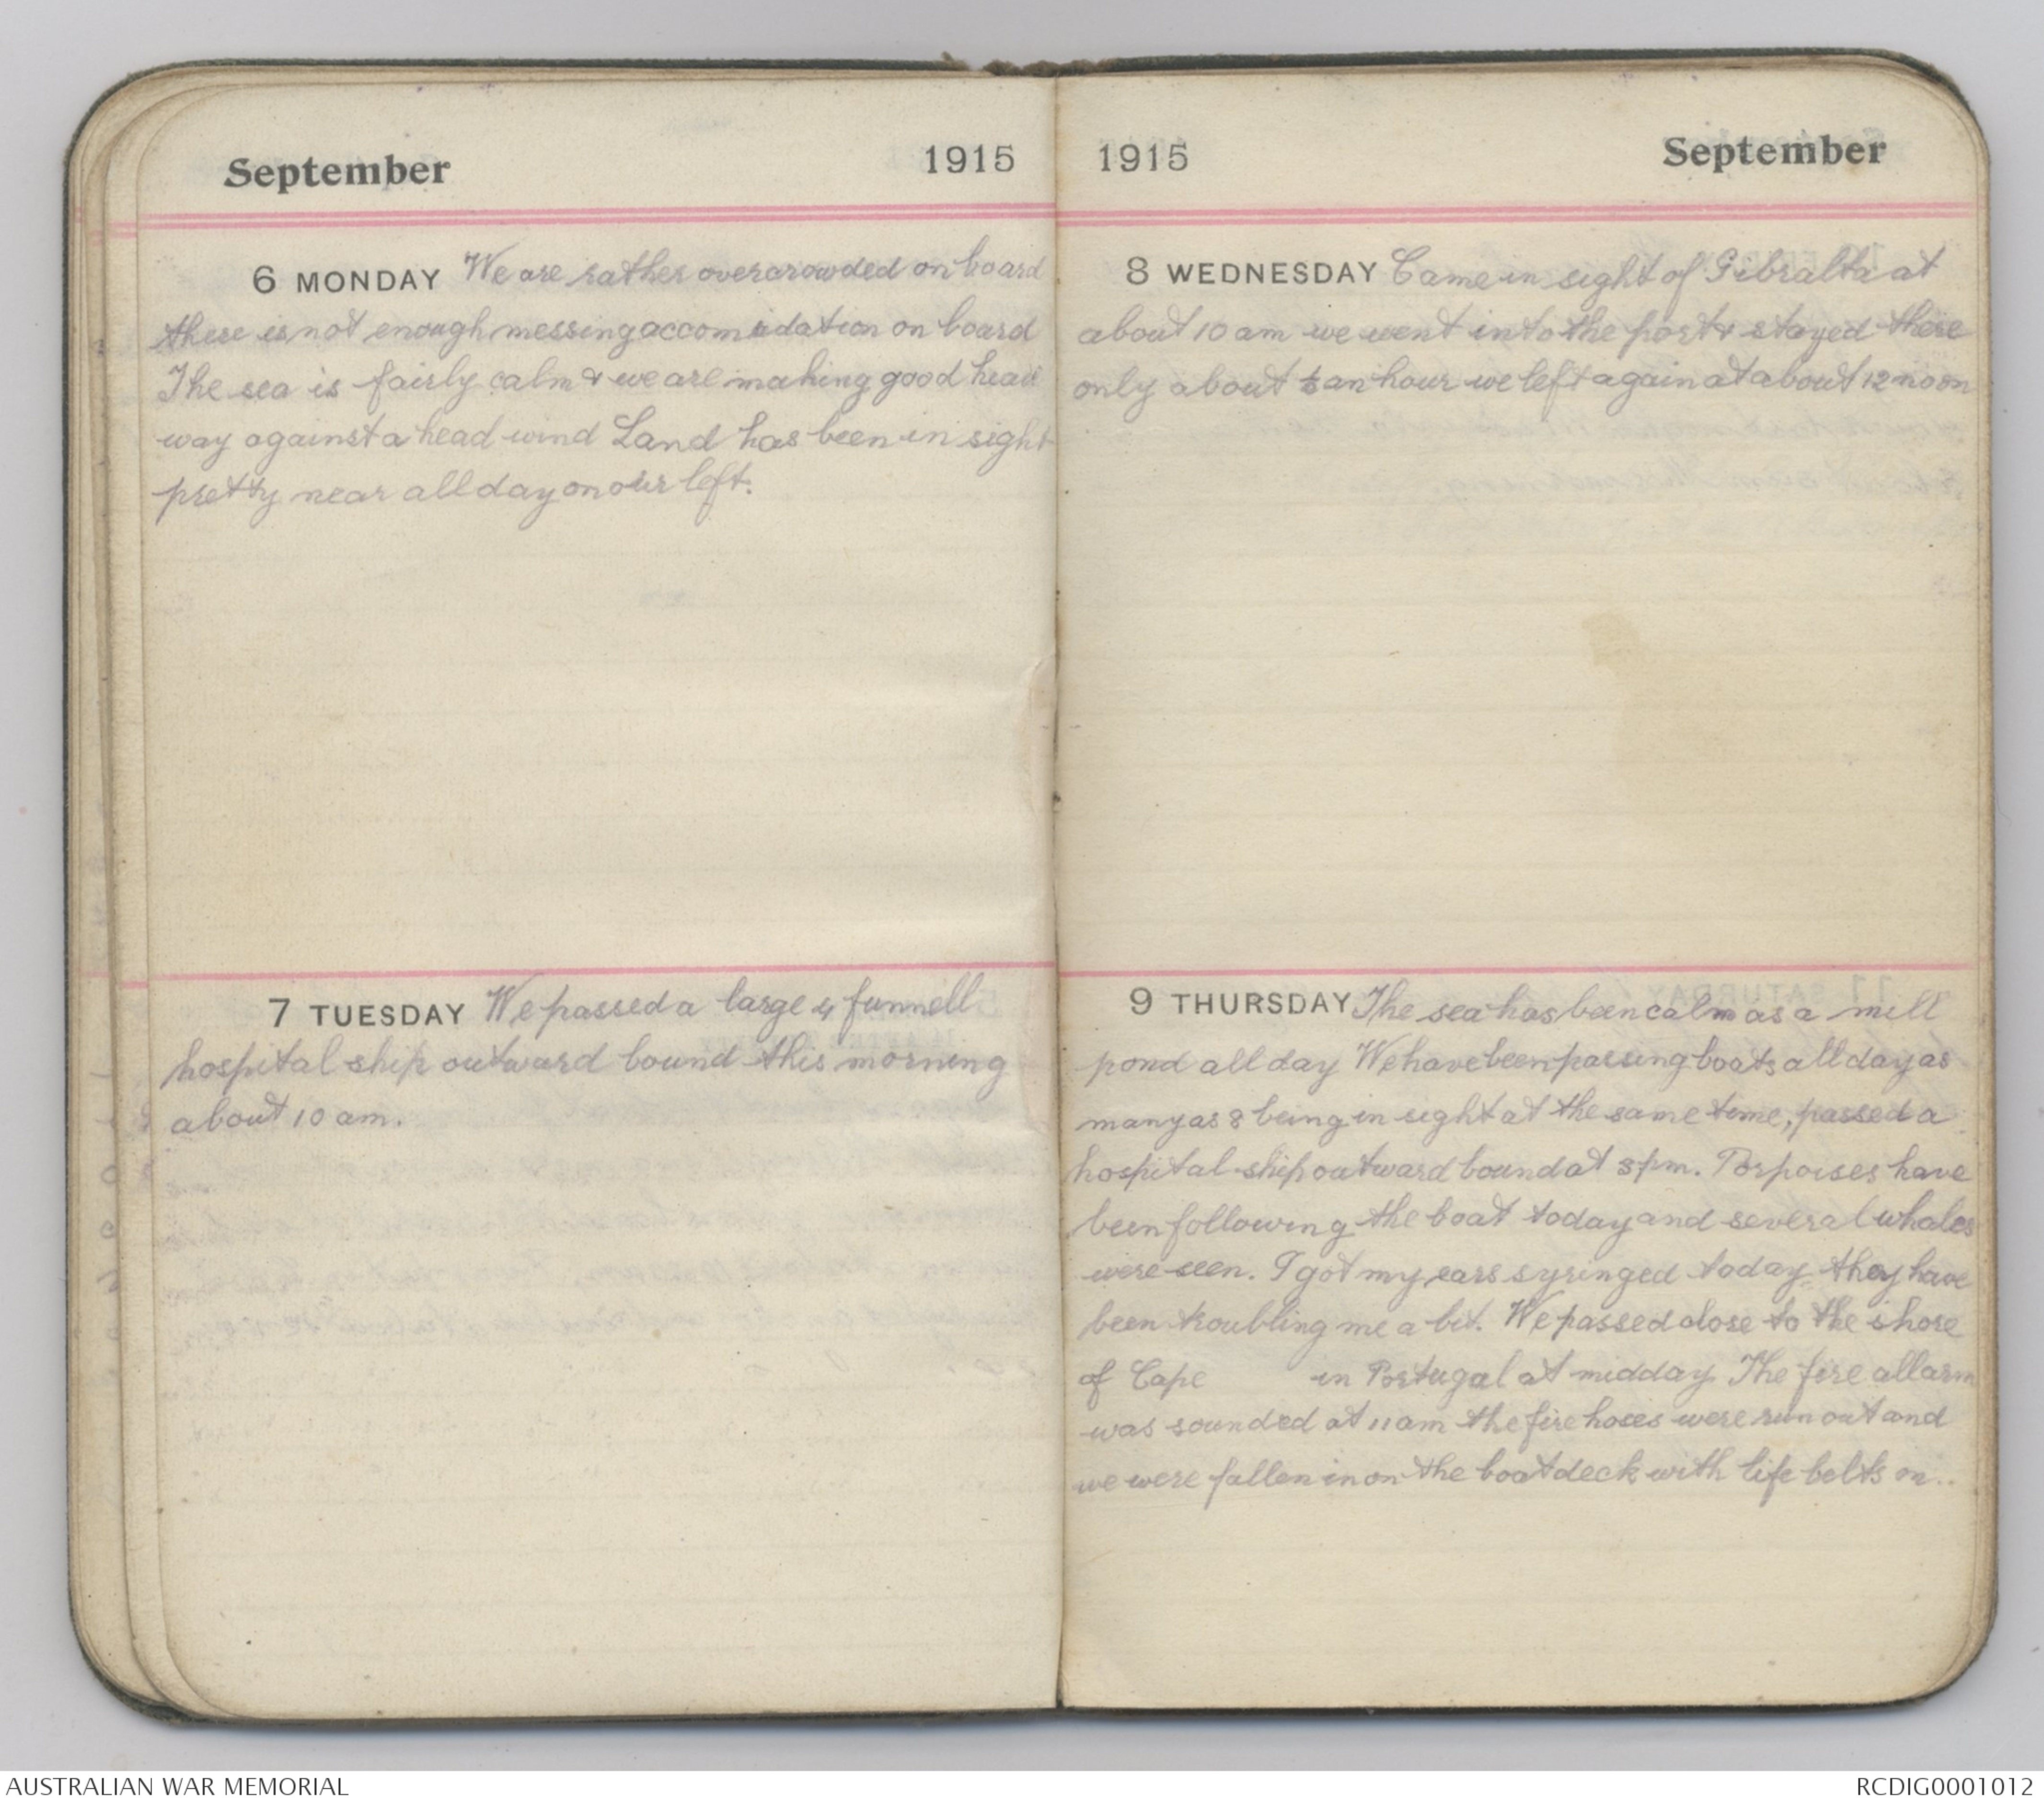 September 1915
6 MONDAY We are rather overcrowded on board
there is not enough messing accomidation on board
The sea is fairly calm & we are making good head
way against a head wind Land has been in sight
pretty near all day on our left.
7 TUESDAY We passed a large 4 funnell
hospital ship outward bound this morning
about 10 am.
1915 September
8 WEDNESDAY Came in sight of Gibralta at
about 10 am we went into the port & stayed there
only about ½ an hour we left again at about 12 noon
9 THURSDAY The sea has been calm as a mill
pond all day We have been passing boats all day as
many as 8 being in sight at the same time, passed a
hospital ship outward bound at 3 pm. Porpoises have
been following the boat today and several whales
were seen. I got my ears syringed today they have
been troubling me a bit. We passed close to the shore
of Cape in Portugal at midday The fire allarm
was sounded at 11 am the fire hoses were run out and
we were fallen in on the boat deck with life belts on..
AUSTRALIAN WAR MEMORIAL
RCDIG0001012